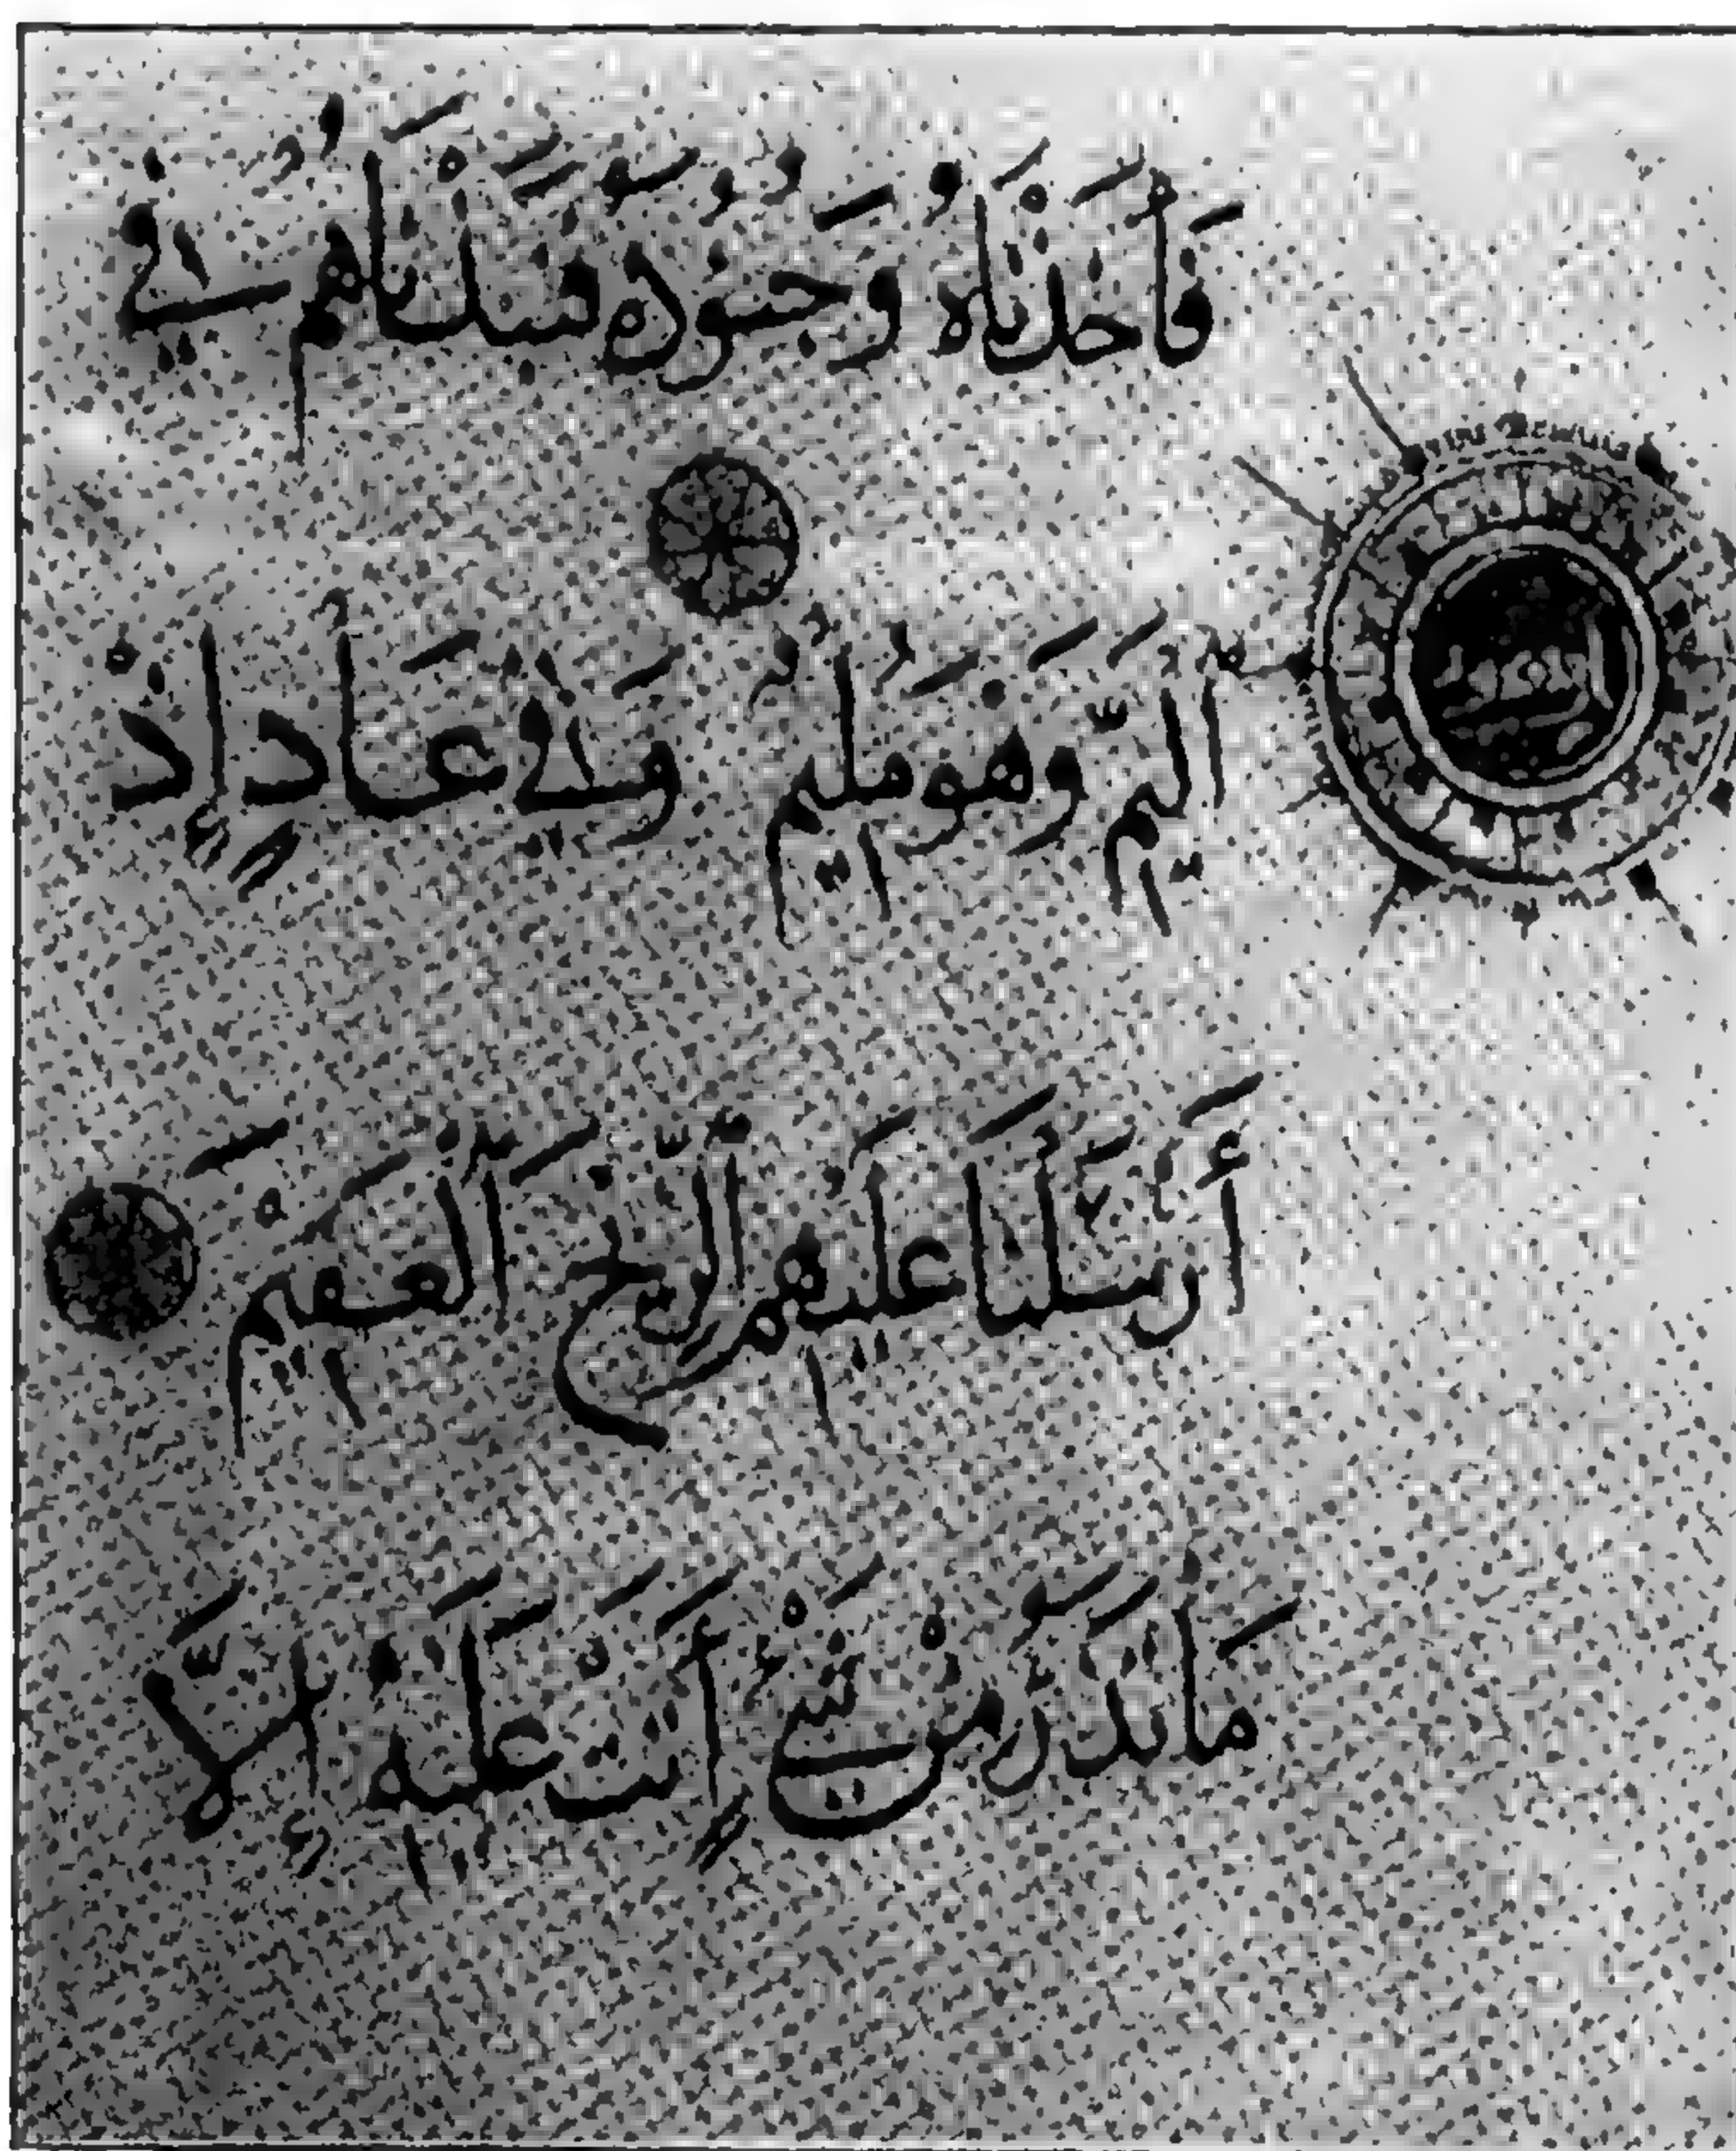 فَأَخَذْنَاهُ وَجُنُودَهُ فَنَبَذْنَاهُمْ فِي
اَلْيَمِّ وَهُوَ مُلِيمٌ وَفِي عَادٍ إِذْ
أَرْسَلْنَا عَلَيْهِمُ اَلرِّيحَ اَلْعَقِيمَ
مَا تَذَرُ مِنْ شَيْءٍ أَتَتْ عَلَيْهِ إِلَّا